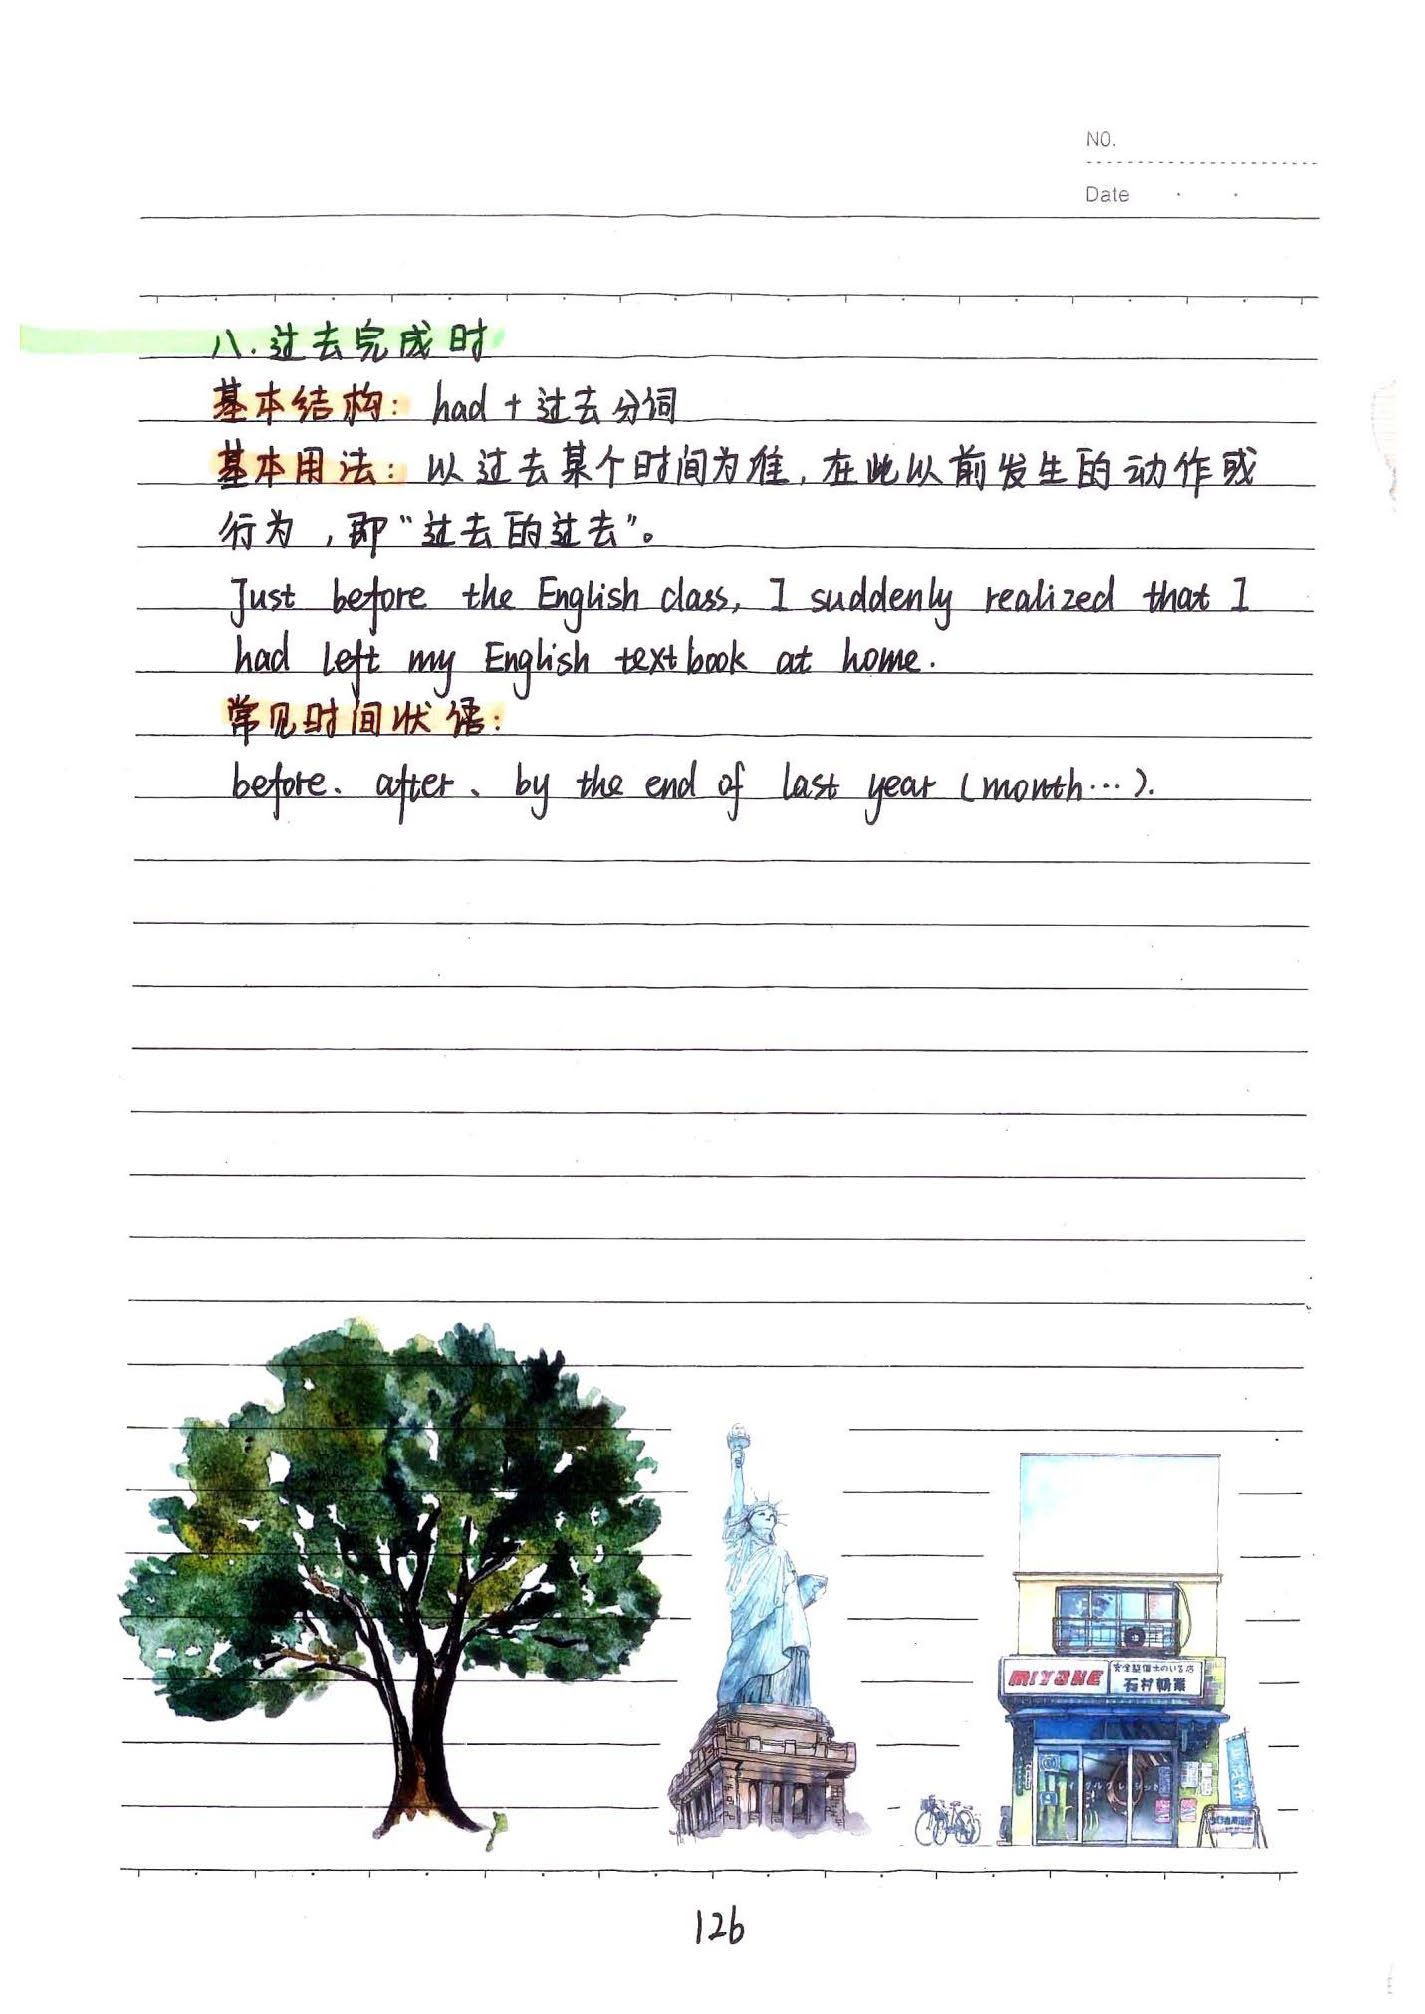 NO.
Date
八.过去完成时
基本结构: had + 过去分词
基本用法: 以过去某个时间为准,在此以前发生的动作或
行为,即“过去的过去”。
Just before the English class, I suddenly realized that I
had left my English textbook at home.
常见时间状语:
before、after、by the end of last year (month…).
MIYAKE
石村
126